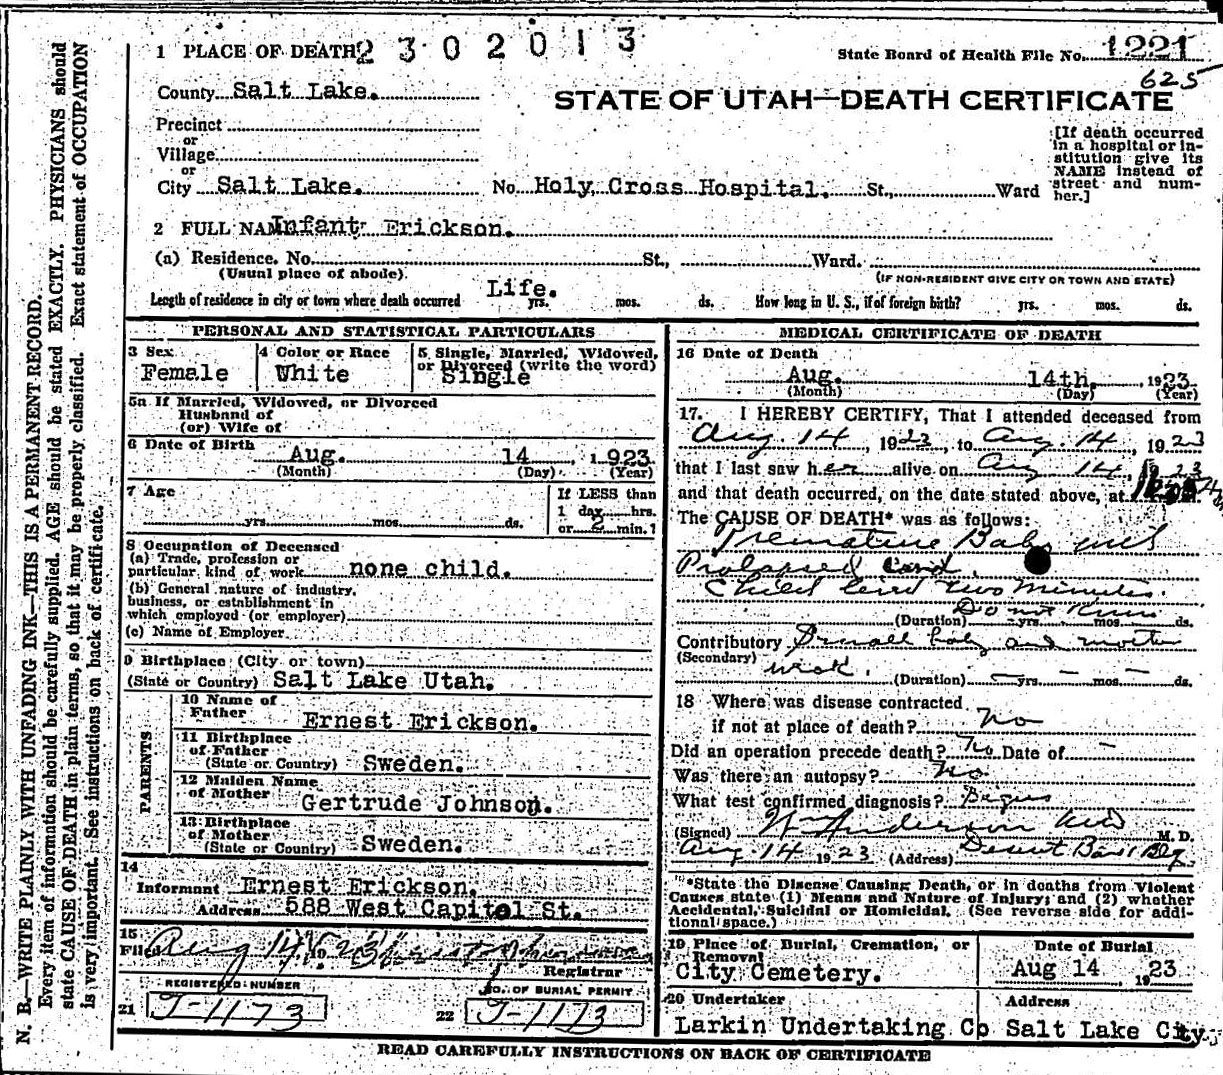 1 PLACE OF DEATH 2302013
State Board of Health File No. 1221
625
County Salt Lake.
STATE OF UTAH—DEATH CERTIFICATE
Precinct
or
Village
or
City Salt Lake. No. Holy Cross Hospital. St., Ward
[If death occurred
in a hospital or in-
stitution give its
NAME instead of
street and num-
ber.]
2 FULL NAME Infant Erickson.
(a) Residence. No. St., Ward.
(Usual place of abode) (IF NON-RESIDENT GIVE CITY OR TOWN AND STATE)
Length of residence in city or town where death occurred Life. yrs. mos. ds. How long in U. S., if of foreign birth? yrs. mos. ds.
PERSONAL AND STATISTICAL PARTICULARS
3 Sex
Female
4 Color or Race
White
5 Single, Married, Widowed,
or Divorced (write the word)
Single
5a If Married, Widowed, or Divorced
Husband of
(or) Wife of
6 Date of Birth
Aug. 14, 1923
(Month) (Day) (Year)
7 Age
yrs. mos. ds.
If LESS than
1 day hrs.
or 2 min.?
8 Occupation of Deceased
(a) Trade, profession or
particular kind of work none child.
(b) General nature of industry,
business, or establishment in
which employed (or employer)
(c) Name of Employer
9 Birthplace (City or town)
(State or Country) Salt Lake Utah.
PARENTS
10 Name of
Father Ernest Erickson.
11 Birthplace
of Father
(State or Country) Sweden.
12 Maiden Name
of Mother Gertrude Johnson.
13 Birthplace
of Mother
(State or Country) Sweden.
14
Informant Ernest Erickson.
Address 588 West Capitol St.
15
Filed Aug 14, 1923
Registrar
REGISTERED NUMBER
21 J-1173
NO. OF BURIAL PERMIT
22 J-1173
MEDICAL CERTIFICATE OF DEATH
16 Date of Death
Aug. 14th. 1923
(Month) (Day) (Year)
17. I HEREBY CERTIFY, That I attended deceased from
Aug. 14, 1923, to Aug. 14, 1923
that I last saw her alive on Aug 14, 1923
and that death occurred, on the date stated above, at
The CAUSE OF DEATH* was as follows:
Premature Baby with
Prolapsed Cord.
Child lived two minutes.
Do not Know
(Duration) yrs. mos. ds.
Contributory Small baby and mother
(Secondary) (Duration) — yrs. — mos. — ds.
18 Where was disease contracted
if not at place of death? No
Did an operation precede death? No Date of —
Was there an autopsy? No.
What test confirmed diagnosis?
(Signed) Wm Anderson M. D.
Aug. 14 1923 (Address) Deseret Bank Blg
*State the Disease Causing Death, or in deaths from Violent
Causes state (1) Means and Nature of Injury; and (2) whether
Accidental, Suicidal or Homicidal. (See reverse side for addi-
tional space.)
19 Place of Burial, Cremation, or
Removal
City Cemetery.
Date of Burial
Aug 14 1923
20 Undertaker
Larkin Undertaking Co
Address
Salt Lake City.
READ CAREFULLY INSTRUCTIONS ON BACK OF CERTIFICATE
N. B.—WRITE PLAINLY WITH UNFADING INK—THIS IS A PERMANENT RECORD.
Every item of information should be carefully supplied. AGE should be stated EXACTLY. PHYSICIANS should
state CAUSE OF DEATH in plain terms, so that it may be properly classified. Exact statement of OCCUPATION
is very important. See instructions on back of certificate.